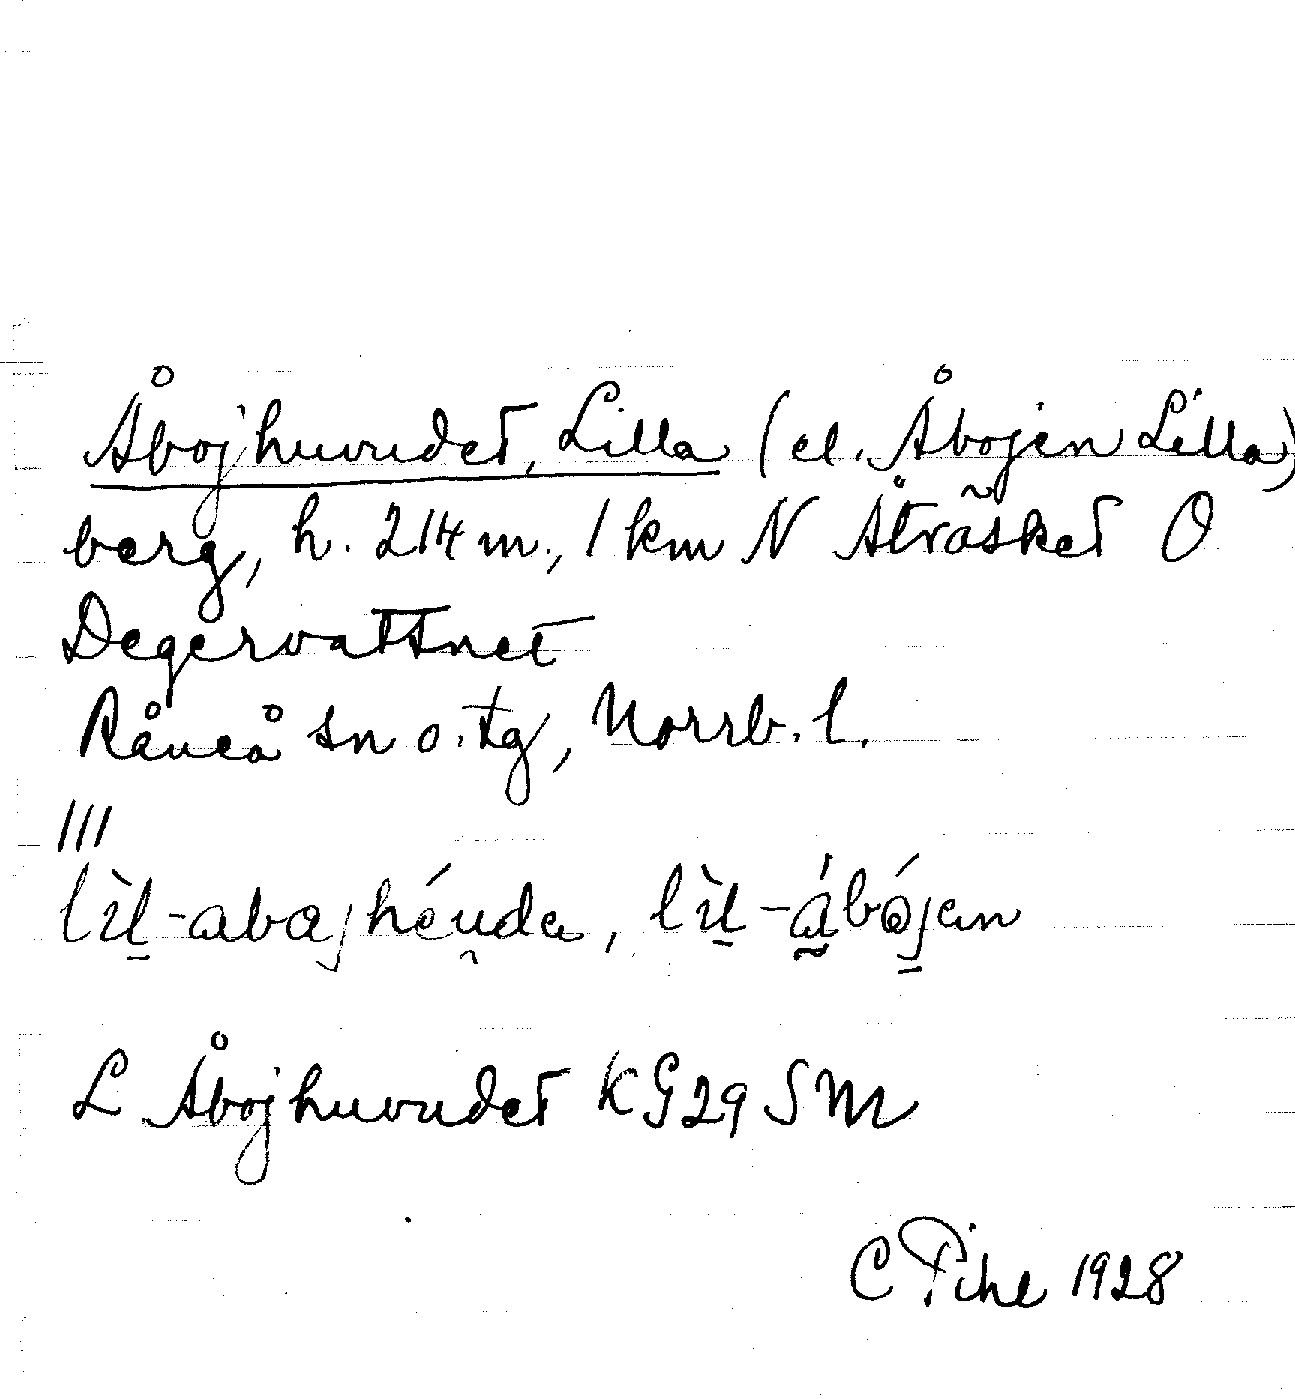 Åbojhuvudet, Lilla (el. Åbojen Lilla)
berg, h. 214 m., 1 km N Åträsket O
Degervattnet
Råneå sn o. tg, Norrb. l.
///
lìl-abajhéuda, lìl-ábójan
L Åbojhuvudet KG29 SM
C Pihl 1928